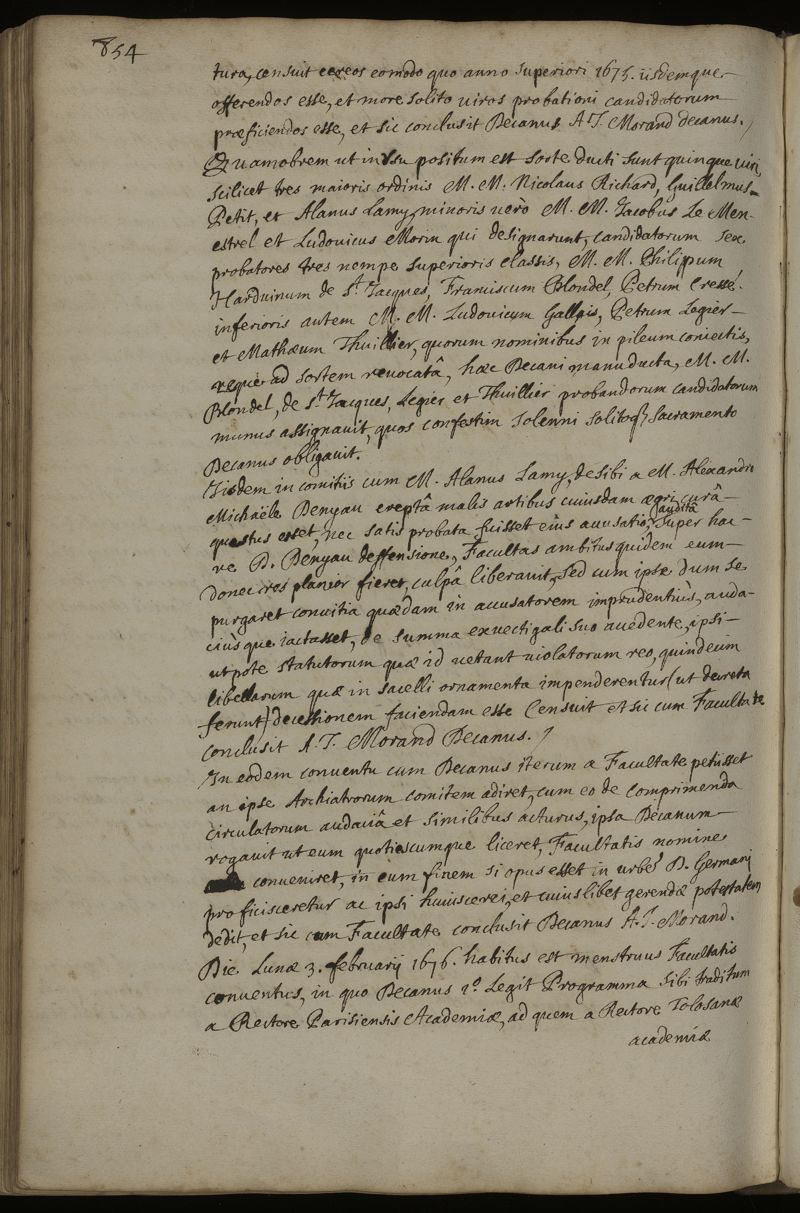 854
tura, censuit cereos eomodo quo anno superiori 1675. iisdemque
offerendos esse, et more solito viros probationi candidatorum
præficiendos esse, et sic conclusit Decanus A. J. Morand decanus. /
Quamobrem ut in Usu positum est sorte ducti sunt quinque viri,
scilicet tres maioris ordinis M. M. Nicolaus Richard, Guillelmus
Petit, et Alanus Lamy, minoris verò M. M. Jacobus Le Men-
estrel et Ludovicus Morin qui designarunt, candidatorum sex
probatores tres nempe superioris classis, M. M. Philippum
Harduinum de St. Jacques, Franciscum Blondel, Petrum Cressé.
inferioris autem M. M. Ludovicum Gallais, Petrum Legier
et Mathæum Thuillier, quorum nominibus in pileum coniectis,
reque ad sortem revocatâ, hæc Decani manu ducta, M. M.
Blondel, de St. Jacques, Legier et Thuillier probandorum candidatorum
munus assignavit, quos confestim solenni solitoq; sacramento
Decanus obligavit.
Iisdem in comitiis cum M. Alanus Lamy, de sibi a M. Alexandro
Michaële Denyau ereptâ malis artibus cuiusdam ægri curâ
questus esset, nec satis probata fuisset eius accusatio, audita super hac
re D. Denyau deffensione, Facultas ambitus quidem eum
donec res planior fieret, culpâ liberavit, sed cum ipse dum se
purgaret convitia quædam in accusatorem imprudentiùs, auda-
ciùsque iactasset, de summa ex vectigali suo accedente, ipsi
utpote statutorum quæ id vetant violatorum reo, quindecim
libellarum quæ in sacelli ornamenta impenderentur (ut decreta
ferunt) decessionem faciendam esse Censuit et sic cum Facultate
conclusit A. J. Morand Decanus. /
In eodem conventu cum Decanus iterum a Facultate petiisset
an ipse Archiatrorum comitem adiret, cum eo de comprimenda
circulatorum audaciâ et similibus acturus, ipsa Decanum
rogavit ut eum quotiescumque liceret, Facultatis nomine
conveniret, in eum finem si opus esset in urbem D. Germani
proficisceretur ac ipsi huiusce rei, et cuiuslibet gerendæ potestatem
dedit, et sic cum Facultate conclusit Decanus A. J. Morand.
Die Lunæ 3. februarij 1676. habitus est menstruus Facultatis
conventus, in quo Decanus 1o. Legit Programma sibi traditum
a Rectore Parisiensis Academiæ, ad quem a Rectore Tolosanæ
academiæ